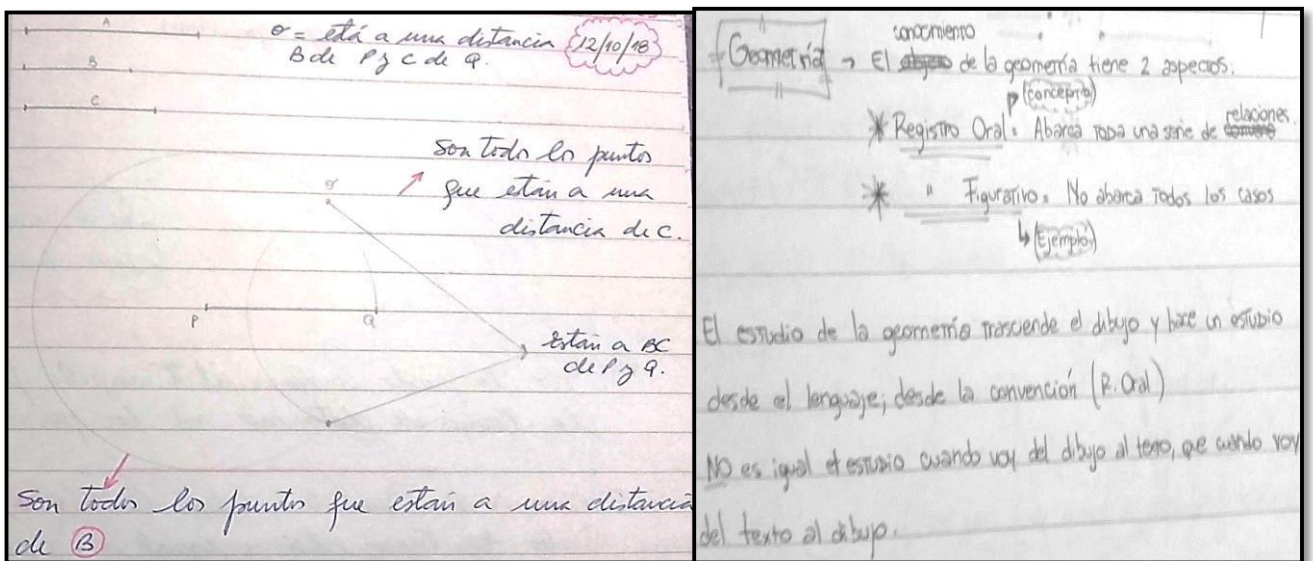 A
B
C
σ = está a una distancia
B de P y C de Q.
12/10/18
Son todos los puntos
que están a una
distancia de C.
σ
P
Q
están a BC
de P y Q.
Son todos los puntos que están a una distancia
de B
Geometría → El conocimiento de la geometría tiene 2 aspectos:
(concepto)
* Registro Oral: Abarca toda una serie de relaciones
* " Figurativo: No abarca todos los casos
↳ (Ejemplo)
El estudio de la geometría trasciende el dibujo y hace un estudio
desde el lenguaje; desde la convención (R. Oral)
NO es igual el estudio cuando voy del dibujo al texto, que cuando voy
del texto al dibujo.